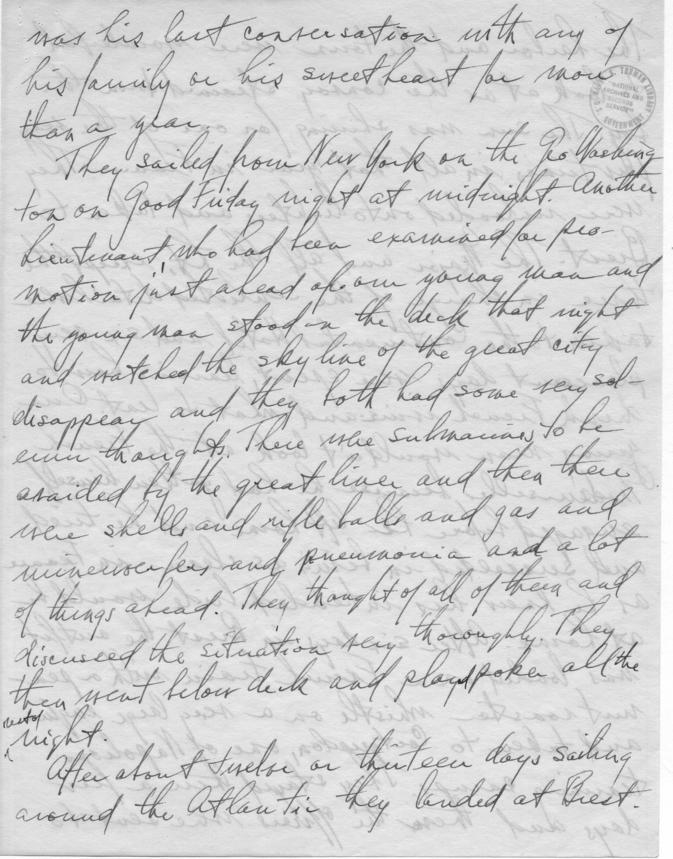 was his last conversation with any of
his family or his sweetheart for more
than a year.
They sailed from New York on the Geo Washing
ton on Good Friday night at midnight. Another
Lieutenant, who had been examined for pro-
motion just ahead of our young man and
the young man stood on the deck that night
and watched the sky line of the great city
disappear and they both had some very sol-
emn thoughts. There were submarines to be
avoided by the great liner and then there
were shells and rifle balls and gas and
minenwerfers and pneumonia and a lot
of things ahead. They thought of all of them and
discussed the situation very thoroughly. They
then went below deck and played poker all the
rest of
night.
After about twelve or thirteen days sailing
around the Atlantic they landed at Brest.
TRUMAN LIBRARY
NATIONAL
ARCHIVES AND
RECORDS
SERVICE
GOVERNMENT